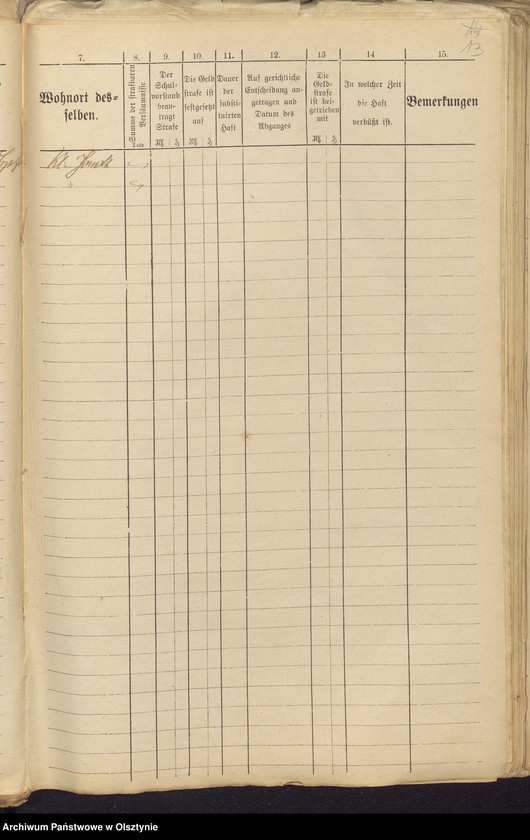 14
13
7.
Wohnort des=
selben.
8.
Summe der strafbaren
Versäumnisse
Tage
9.
Der
Schul-
vorstand
bean-
tragt
Strafe
M ₰
10.
Die Geld
strafe ist
festgesetzt
auf
M ₰
11.
Dauer
der
substi-
tuirten
Haft.
12.
Auf gerichtliche
Entscheidung an-
getragen und
Datum des
Abganges
13
Die
Geld-
strafe
ist bei-
getrieben
mit
M ₰
14
In welcher Zeit
die Haft
verbüßt ist.
15.
Bemerkungen
Kl.
"
Archiwum Państwowe w Olsztynie